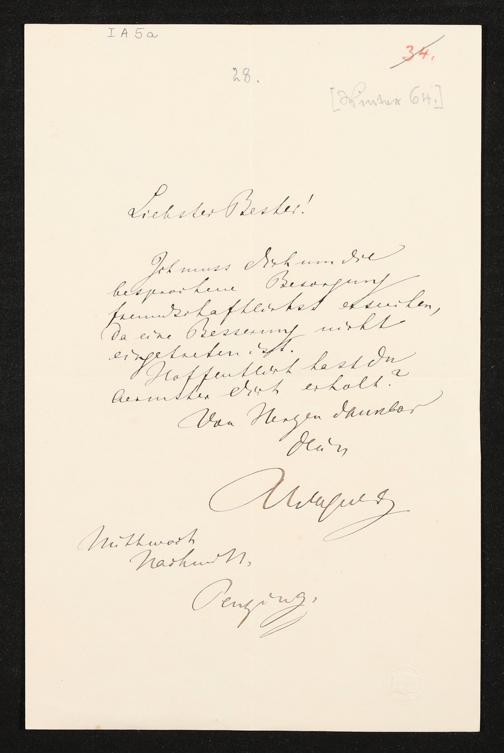 I A 5 a
34.
28.
[Winter 64.]
Liebster Bester!
Ich muss dich um die
besprochene Besorgung
freundschaftlichst ersuchen,
da eine Besserung nicht
eingetreten ist.
Hoffentlich hast du
Aermster dich erholt?
Von Herzen dankbar
dein
Mittwoch
Nachmitt.
Penzing.